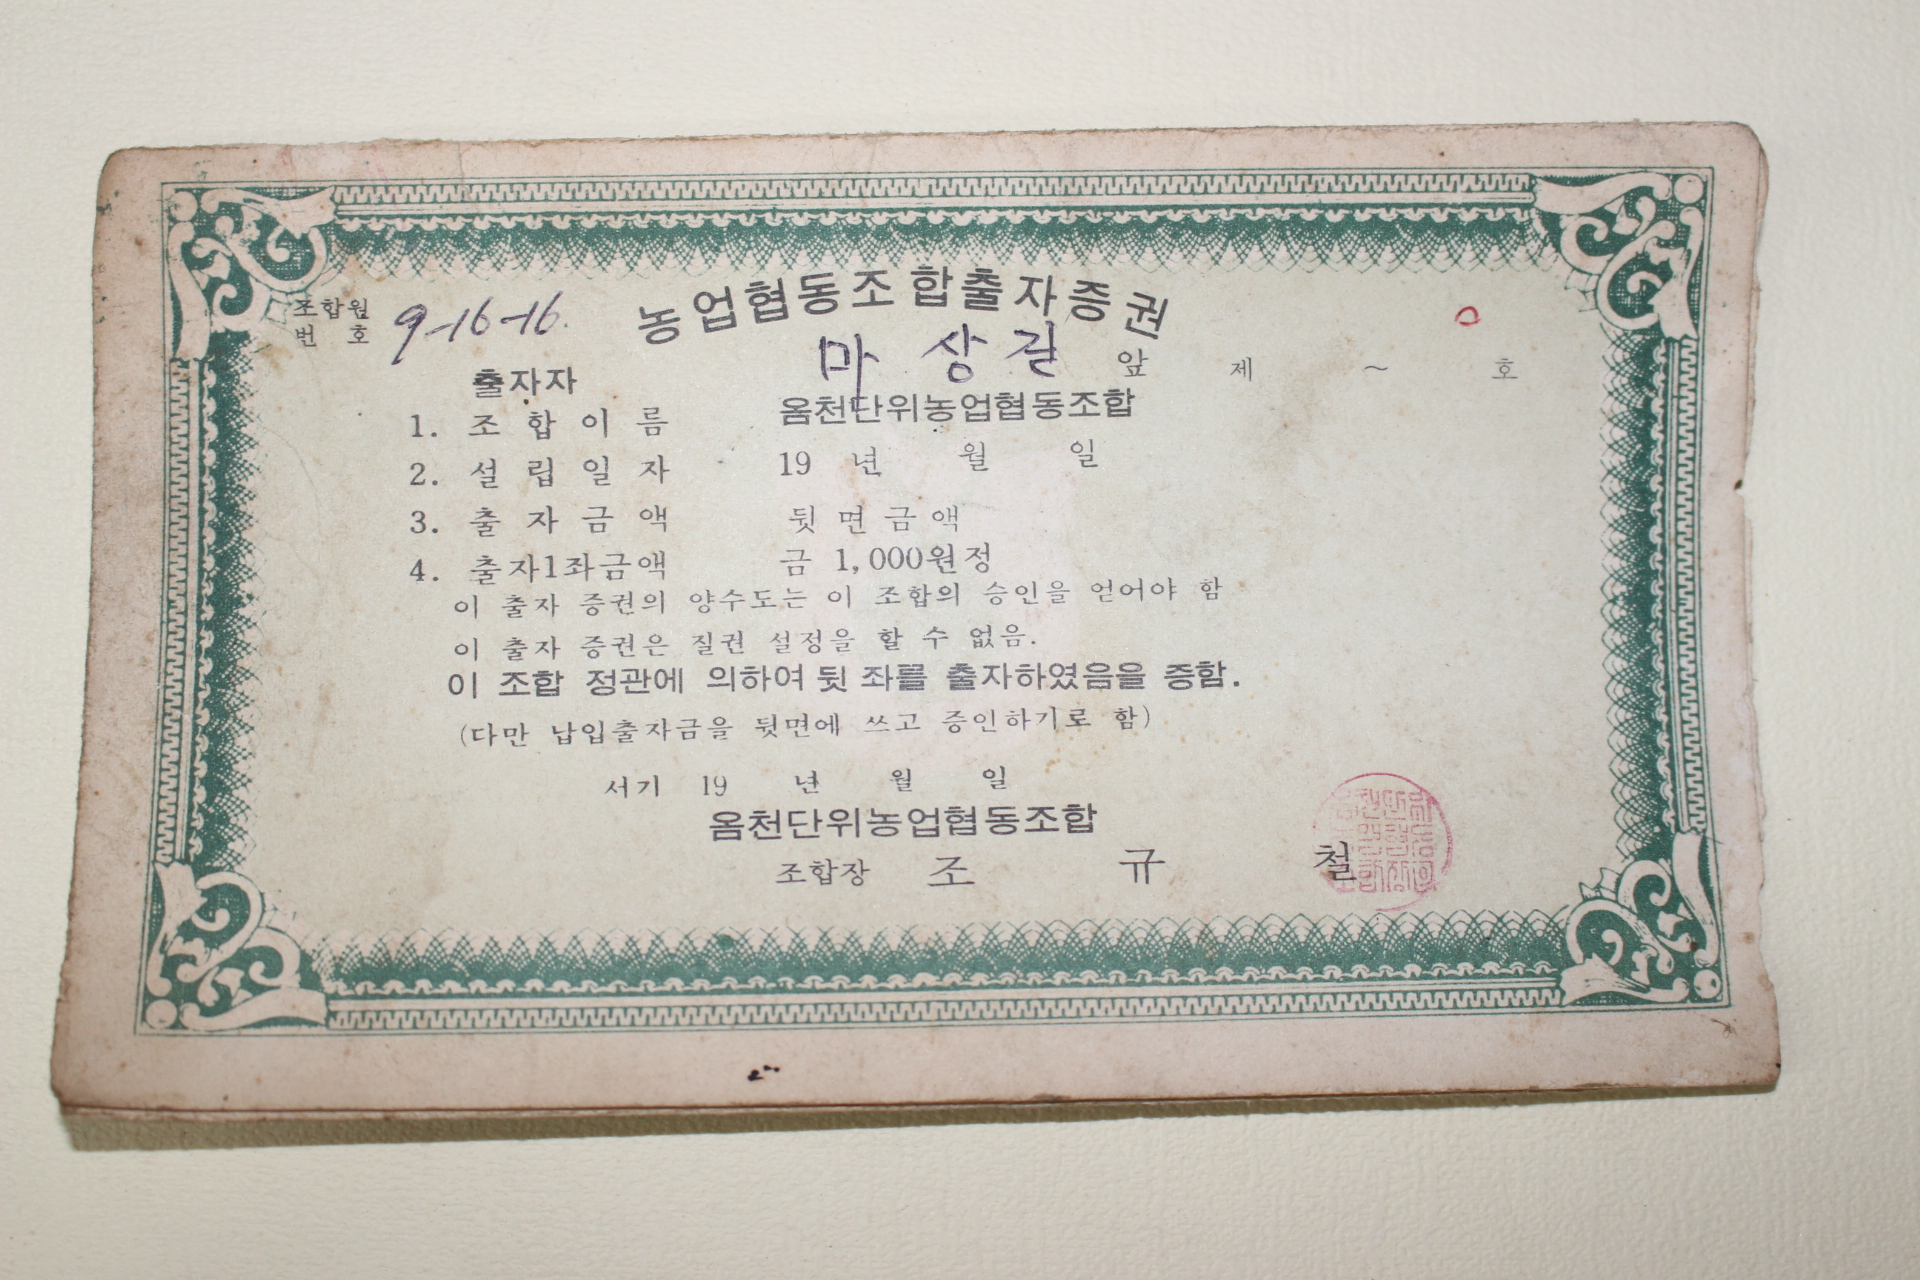 농업협동조합출자증권
조합원
번 호 9-16-16.
출자자 마 상 길 앞 제 ~ 호
1. 조 합 이 름 옴천단위농업협동조합
2. 설 립 일 자 19 년 월 일
3. 출 자 금 액 뒷 면 금 액
4. 출자1좌금액 금 1,000원정
이 출자 증권의 양수도는 이 조합의 승인을 얻어야 함
이 출자 증권은 질권 설정을 할 수 없음.
이 조합 정관에 의하여 뒷 좌를 출자하였음을 증함.
(다만 납입출자금을 뒷면에 쓰고 증인하기로 함)
서기 19 년 월 일
옴천단위농업협동조합
조합장 조 규 철